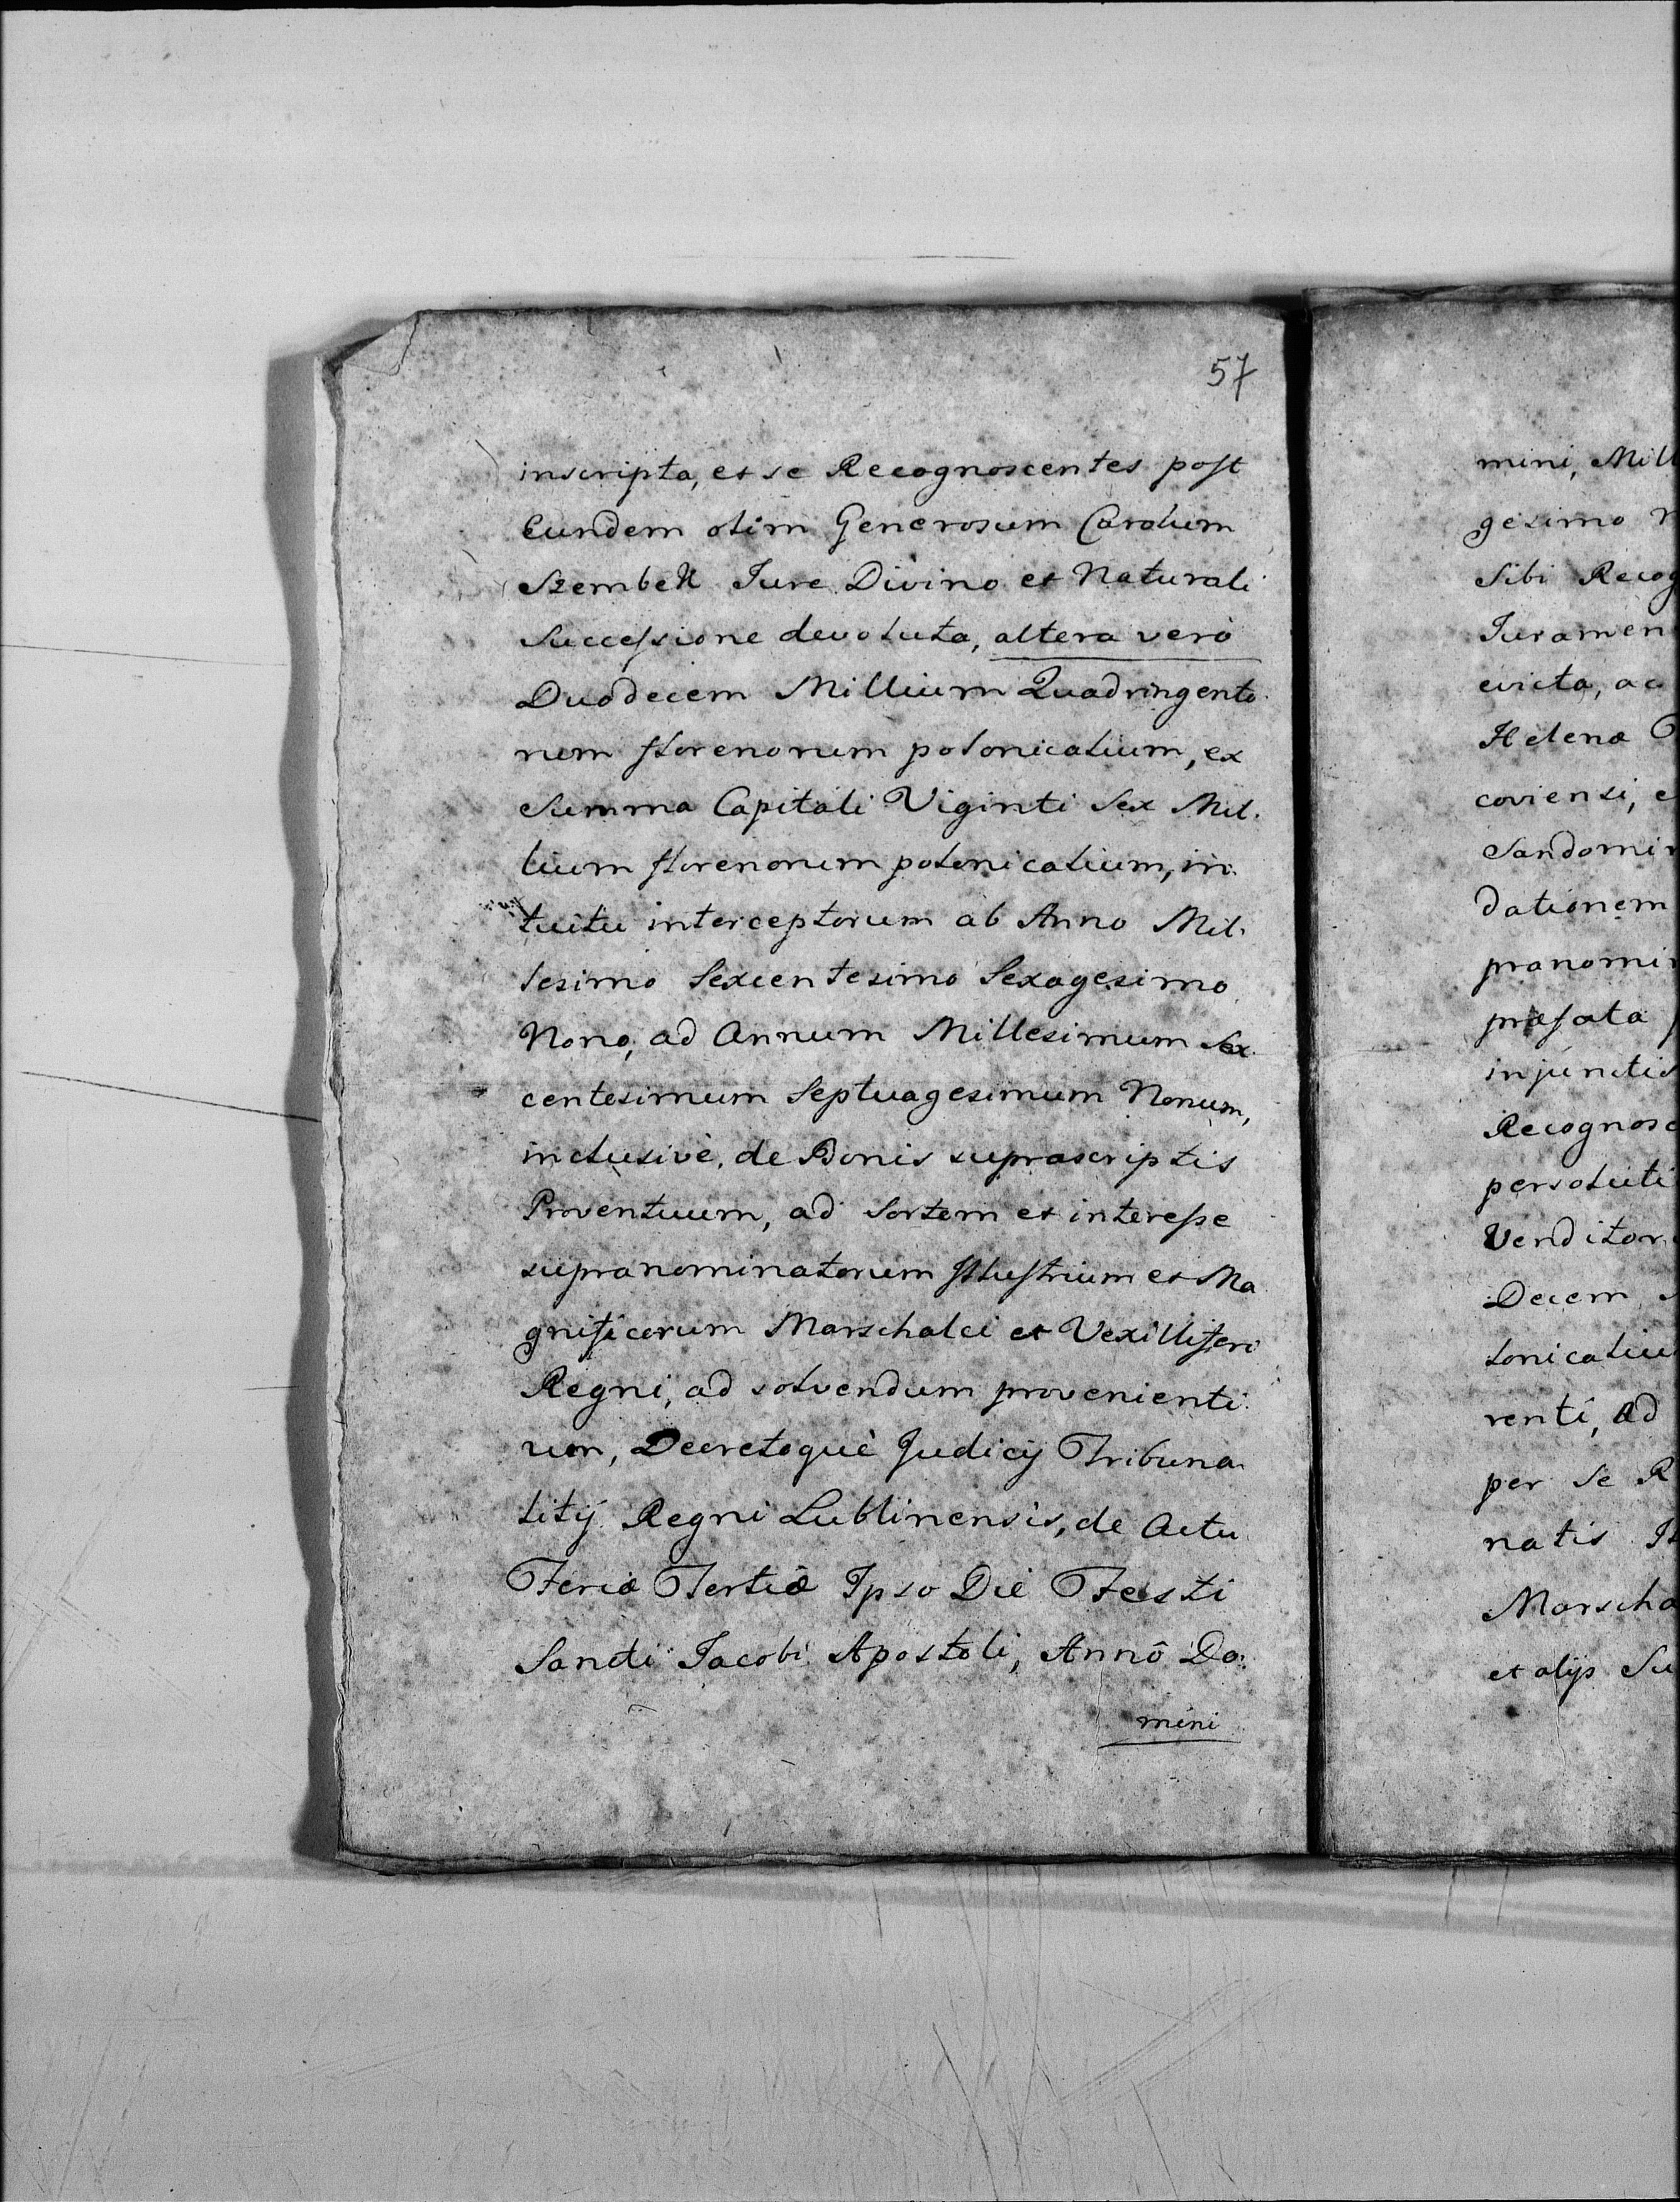 57
inscripta, et se Recognoscentes post
Eundem olim Generosum Carolum
Szembek Jure Divino et Naturali
Successione devoluta, altera verò
Duodecem Millium Quadringento
rum florenorum polonicalium, ex
Summa Capitali Viginti Sex Mil.
lium florenorum polonicalium, in
tuitu interceptorum ab Anno Mil.
lesimo Sexcentesimo Sexagesimo
Nono, ad Annum Millesimum Sex
centesimum Septuagesimum Nonum,
inclusivè, de Bonis suprascriptis
Proventuum, ad Sortem et interesse
supranominatorum Illustrium et Ma
gnificorum Marschalci et Vexilliferi
Regni, ad solvendum provenienti
um, Decretoquè Judicij Tribuna
litij Regni Lublinensis, de Actu
Feria Tertia Ipso Die Festi
Sancti Jacobi Apostoli, Annô Do:
mini
mini, Mill
gesimo N
Sibi Recog
Juramen
evicta, ac
Helena
coviensi, e
Sandomir
dationem
pranomin
præfata
injunctis
Recognosc
persoluti
Venditor
Decem
lonicaliu
renti, ad
per Se R
natis
Marscha
et alijs Su